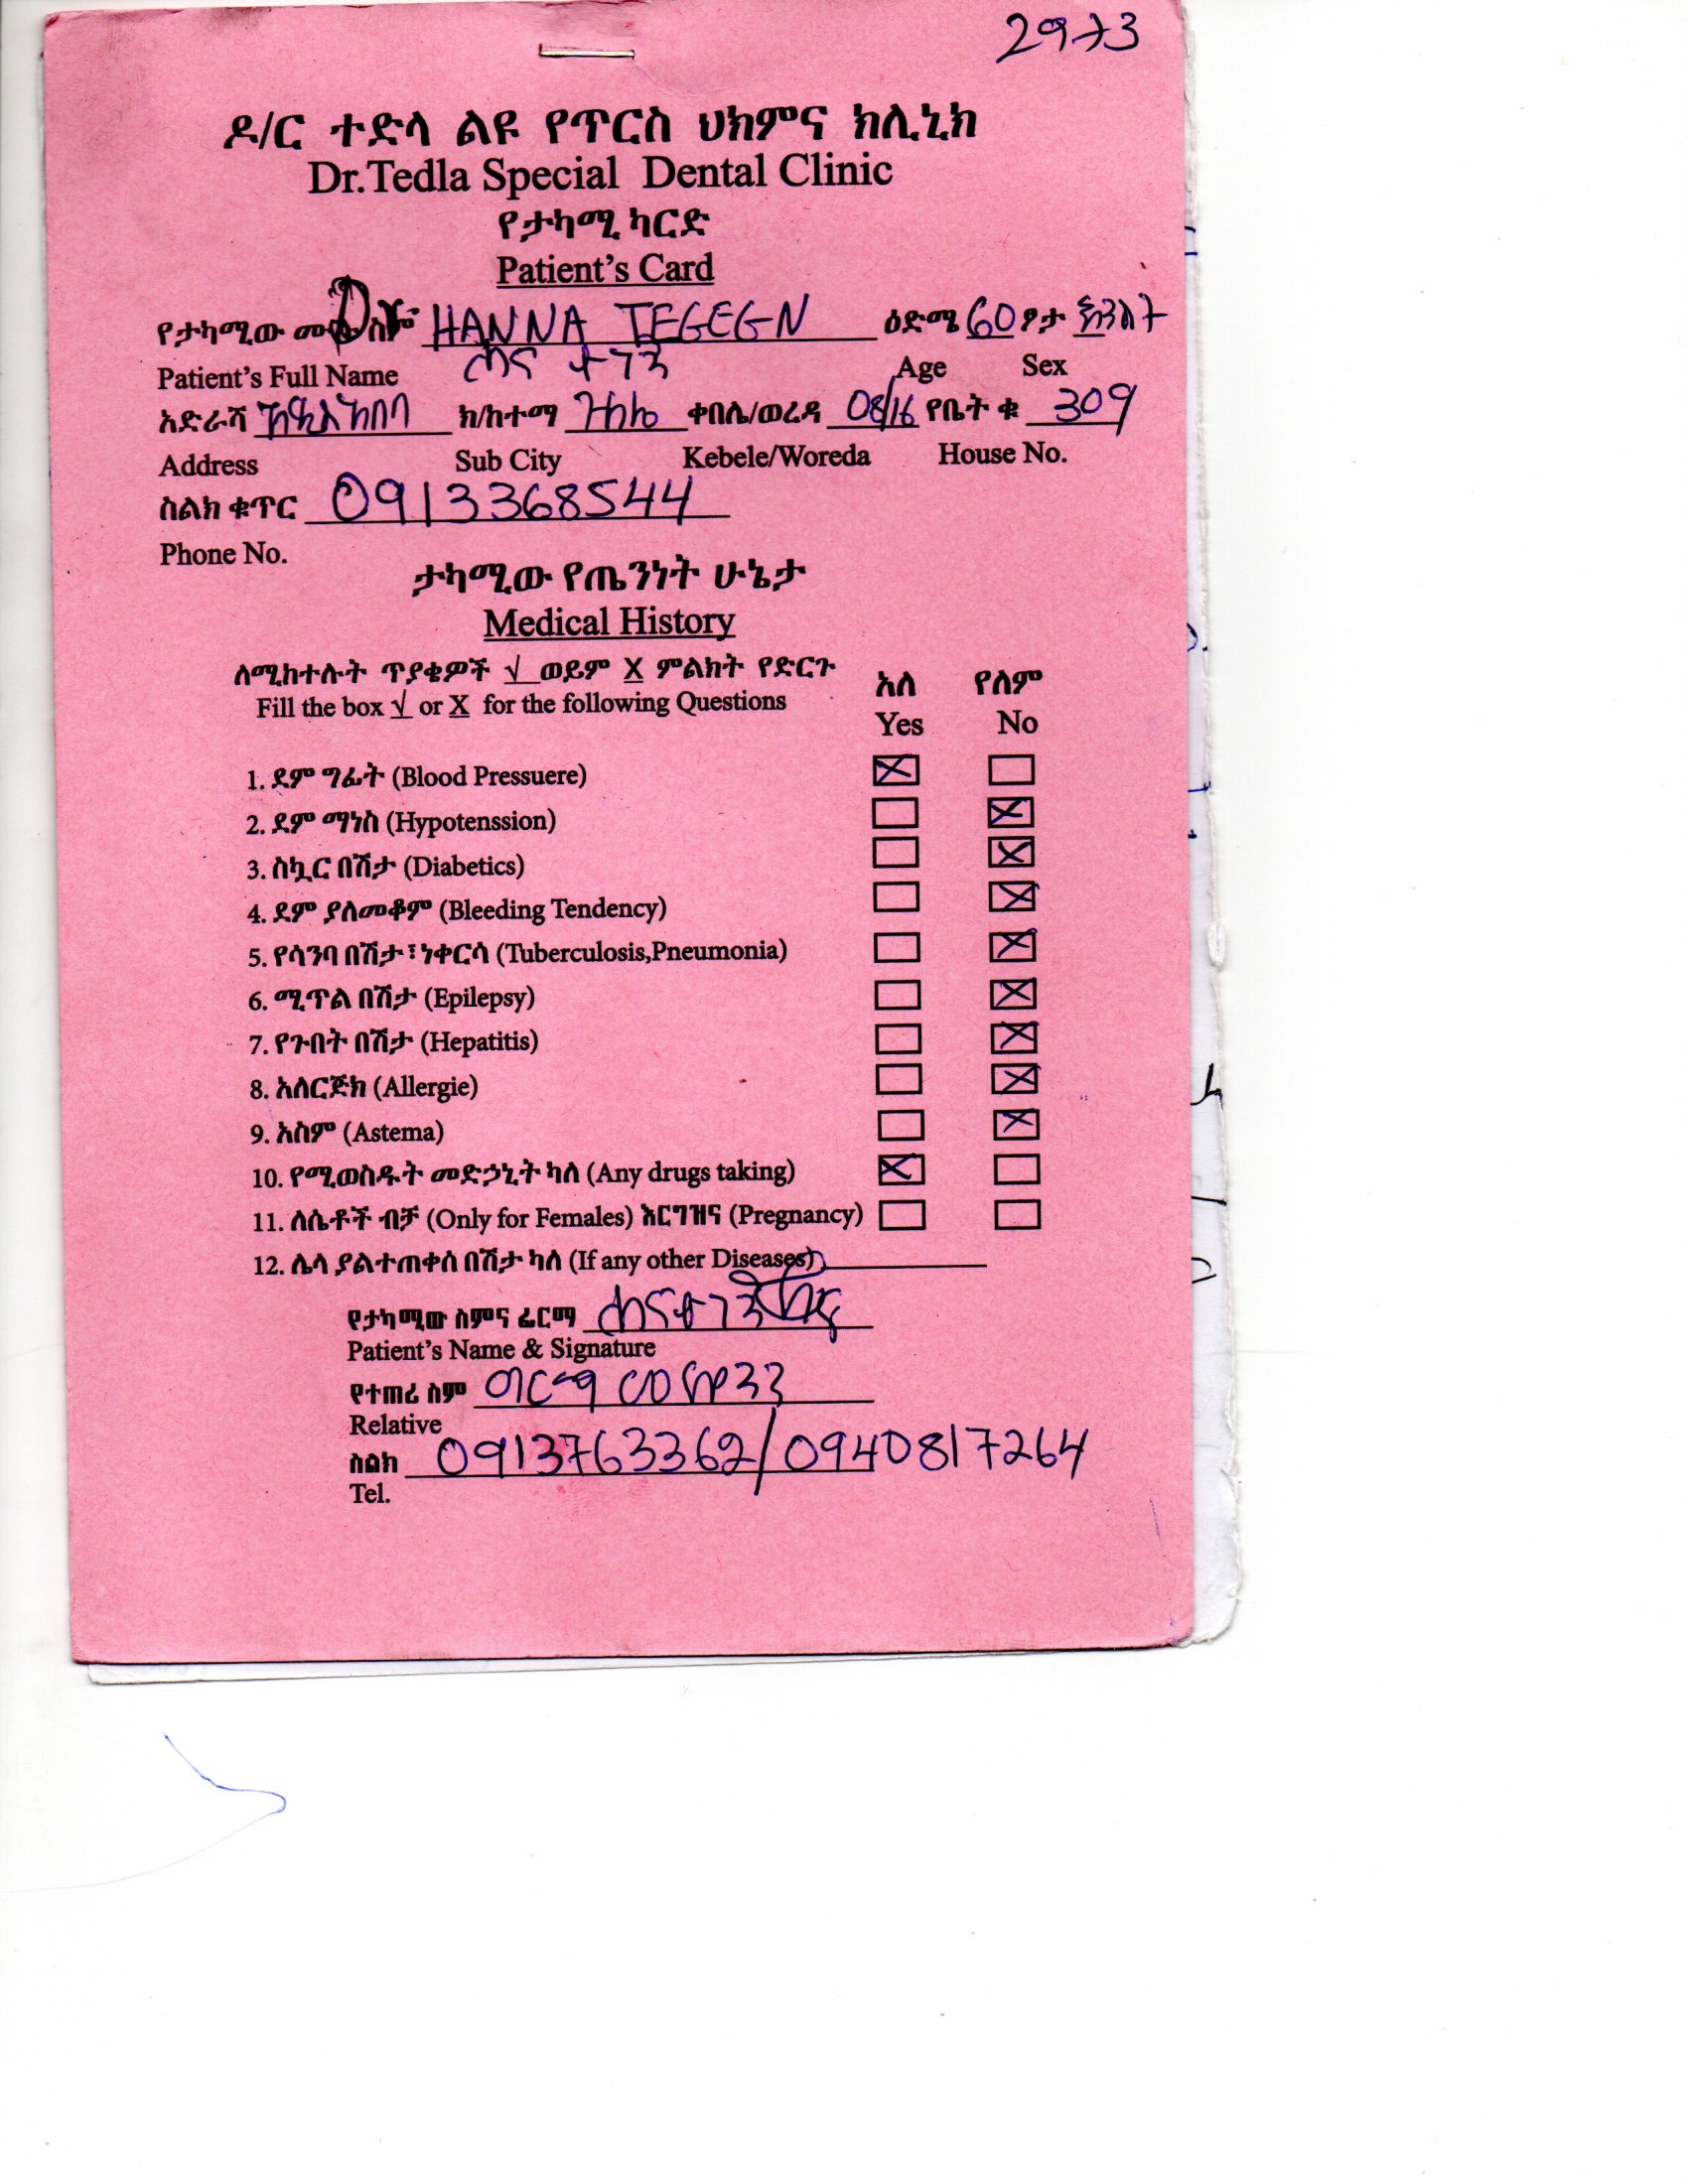 2973
ዶ/ር ተድላ ልዩ የጥርስ ህክምና ክሊኒክ
Dr.Tedla Special Dental Clinic
የታካሚ ካርድ
Patient's Card
የታካሚው ስም Dr HANNA TEGEGN ዕድሜ 60 ፆታ
Patient's Full Name ሐና ተገኝ Age Sex
አድራሻ አዲስ አበባ ክ/ከተማ ቀበሌ/ወረዳ 08/16 የቤት ቁ 309
Address Sub City Kebele/Woreda House No.
ስልክ ቁጥር 0913368544
Phone No.
ታካሚው የጤንነት ሁኔታ
Medical History
ለሚከተሉት ጥያቄዎች √ ወይም X ምልክት የድርጉ አለ የለም
Fill the box √ or X for the following Questions Yes No
1. ደም ግፊት (Blood Pressuere)
2. ደም ማነስ (Hypotenssion)
3. ስኳር በሽታ (Diabetics)
4. ደም ያለመቆም (Bleeding Tendency)
5. የሳንባ በሽታ፣ነቀርሳ (Tuberculosis,Pneumonia)
6. ሚጥል በሽታ (Epilepsy)
7. የጉበት በሽታ (Hepatitis)
8. አለርጅክ (Allergie)
9. አስም (Astema)
10. የሚወስዱት መድኃኒት ካለ (Any drugs taking)
11. ለሴቶች ብቻ (Only for Females) እርግዝና (Pregnancy)
12. ሌላ ያልተጠቀሰ በሽታ ካለ (If any other Diseases)
የታካሚው ስምና ፊርማ ሐና ተገኝ
Patient's Name & Signature
የተጠሪ ስም ግርማ
Relative
ስልክ 0913763362/0940817264
Tel.